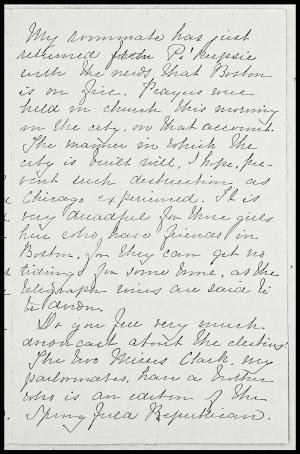 My roommate has just
returned from Po'keepsie
with the news, that Boston
is on fire. Prayers were
held in church this morning
in the city, on that account.
The manner in which the
city is built will, I hope, pre-
vent such destruction as
Chicago experienced. It is
very dreadful for those girls
here who, have friends in
Boston, for they can get no
tidings for some time, as the
telegraph wires are said to
be down.
Do you feel very much
downcast about the election?
The two Misses Clark, my
parlormates, have a brother
who is an editor of the
Springfield Republican.